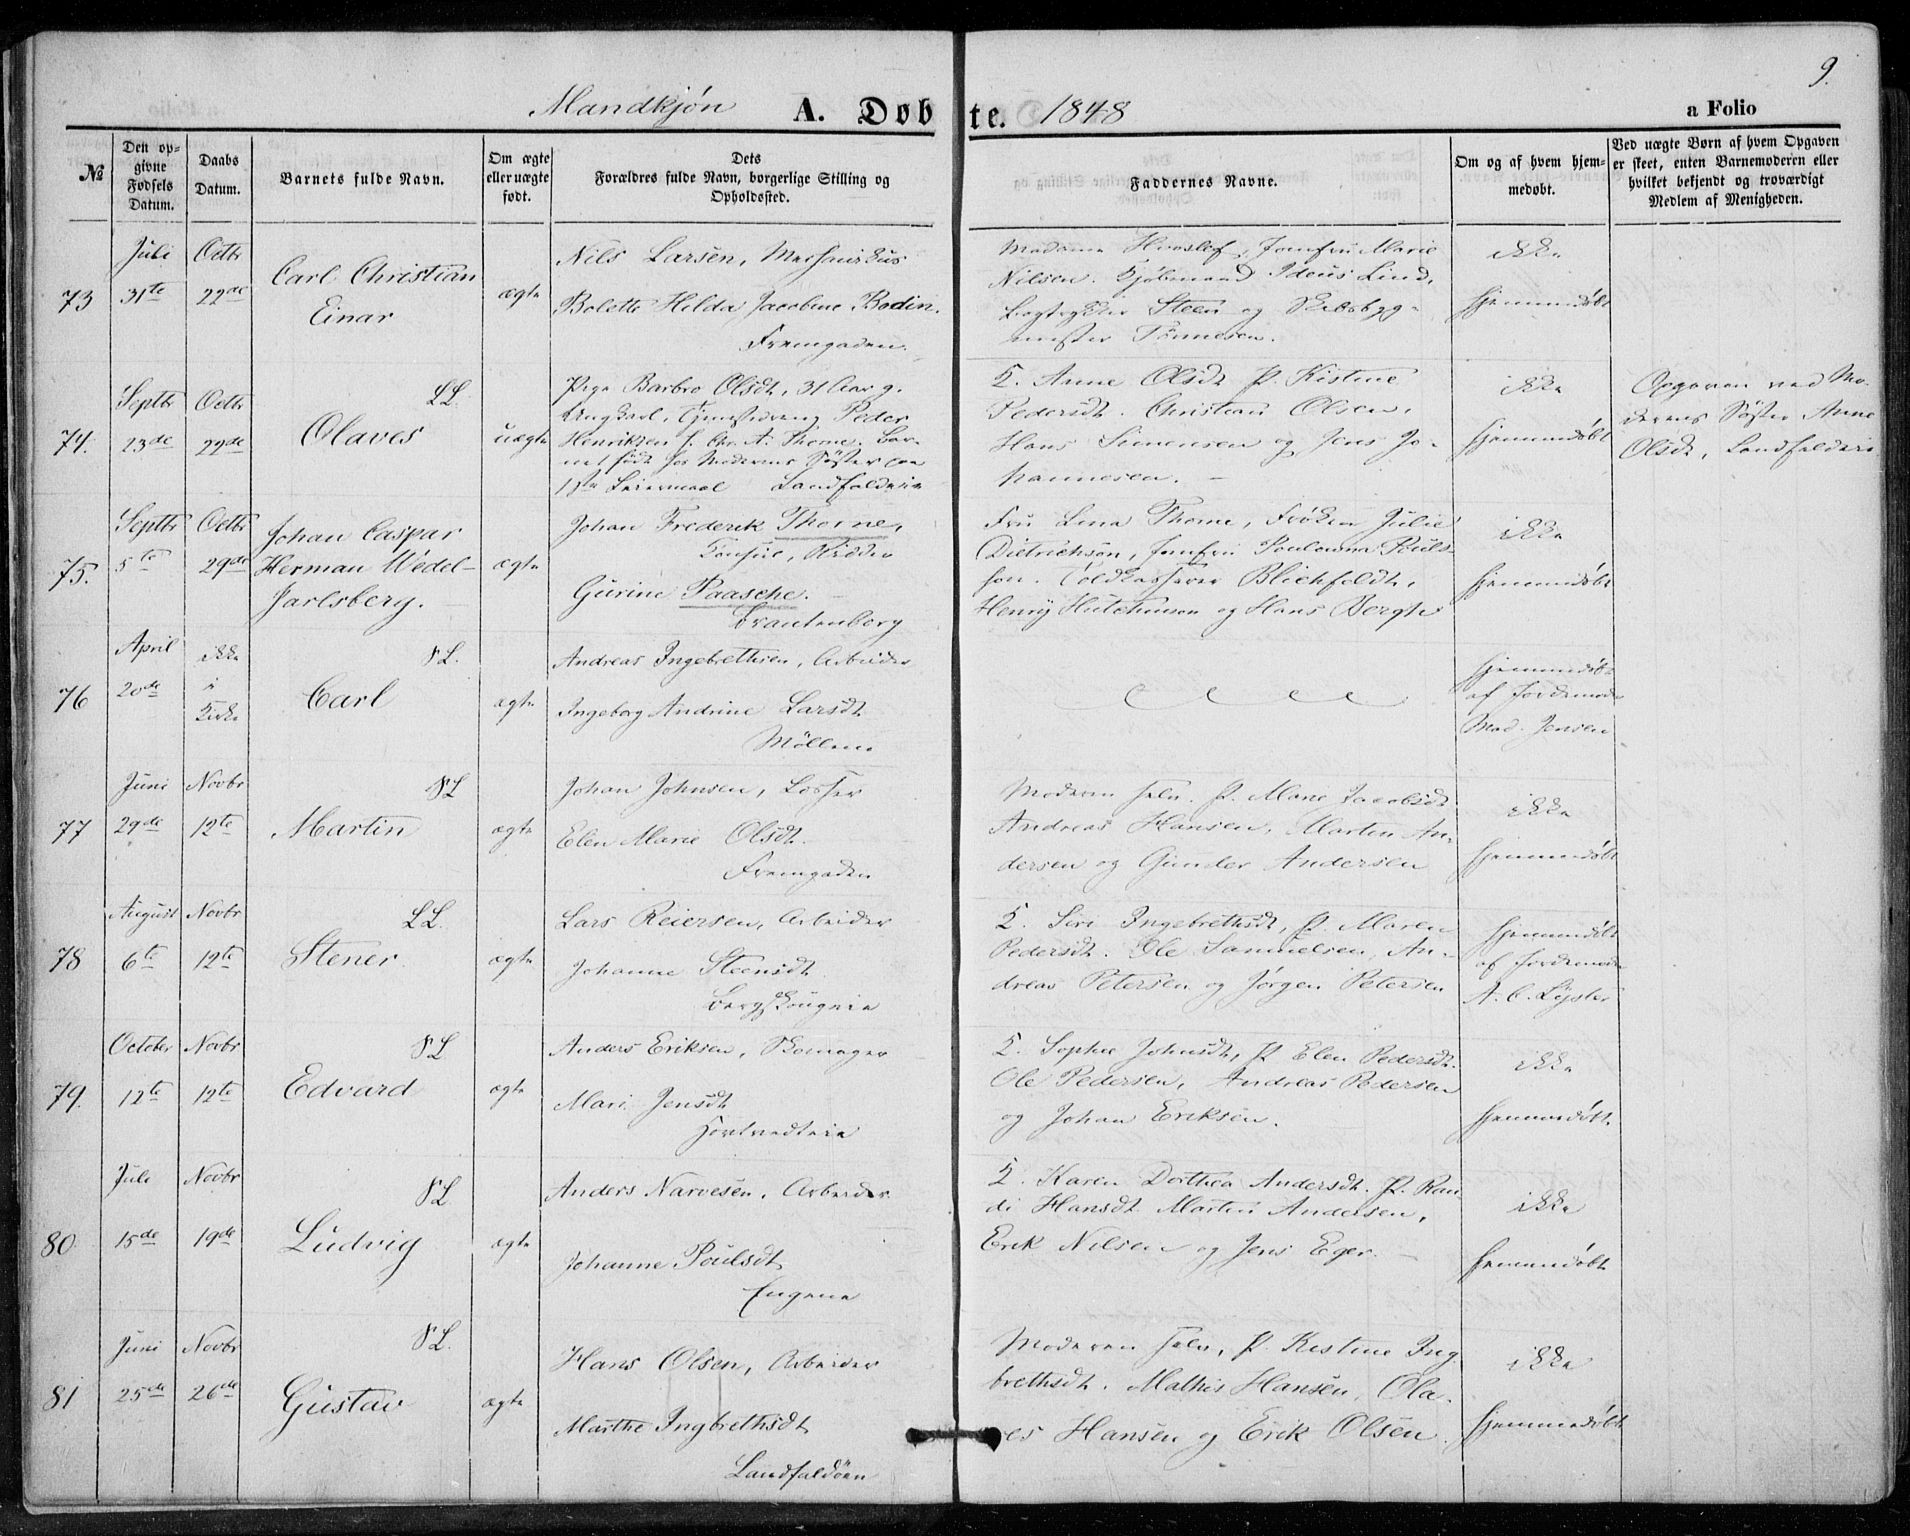 9.
Mandkjøn A. Døbte. 1848 a Folio
№
Den opgivne Fødsels Datum.
Daabs Datum.
Barnets fulde Navn.
Om ægte eller uægte født.
Dets Forældres fulde Navn, borgerlige Stilling og Opholdssted.
Faddernes Navne.
Om og af hvem hjemmedøbt.
Ved uægte Børn af hvem Opgaven er skeet, enten Barnemoderen eller hvilket bekjendt og troværdigt Medlem af Menigheden.
73
Juli
31te
Octbr
22de
Carl Christian
Einar
ægte
Nils Larsen,
Bolette Hilda Jacobine Bodin.
Fremgaden.
Madame Hvoslef, Jomfru Marie
Nilsen. Kjøbmand Ideus Lind,
Bogtrykker Steen og Skibsbyg-
mester Tönnesen.
ikke
hjemmedøbt
74.
Septbr
23de
Octbr
22de
LL.
Olaves
uægte
Pige Barbro Olsdt, 31 Aar g.
Ungkarl, Tjenestedreng Peder
Henriksen f. Chr. A. Thorne. Bar-
net født hos Moderens Søster
1ste Leiermaal Landfalderie
K. Anne Olsdt P. Kistine
Pedersdt. Christian Olsen,
Hans Simensen og Jens Jo-
hannesen. –
ikke
hjemmedøbt
Opgaven ved Mo-
derens Søster Anne
Olsdt, Landfalderie
75.
Septbr
5te
Octbr
29de
Johan Caspar
Herman Wedel-
Jarlsberg. –
ægte
Johan Frederik Thorne,
Konsul, Ridder
Gurine Paasche. –
Frantenborg
Fru Lina Thorne, Frøken Julie
Dietrichson, Jomfru Poulouma Pouls-
son. Toldkasserer Blichfeldt,
Henry Hutchinson og Hans Bergh
ikke
hjemmedøbt
76
April
20de
ikke
i
Kirke
SL.
Carl
ægte
Andreas Ingebrethsen, Arbeider
Ingeborg Andrine Larsdt
Möllene
hjemmedøbt
af Jordemoder
Mad. Jensen
77
Juni
29de
Novbr
12te
SL
Martin
ægte
Johan Johnsen, Losser
Elen Marie Olsdt.
Fremgaden
Moderen selv. P. Marie Jacobsdt
Andreas Hansen, Martin An-
dersen og Gunder Andersen
ikke
hjemmedøbt
78
August
6te
Novbr
12te
LL.
Stener
ægte
Lars Reiersen, Arbeider
Johanne Steensdt
Bergskougeie
K. Siri Ingebrethsdt, P. Maren
Pedersdt. Ole Samuelsen, An-
dreas Petersen og Jørgen Petersen
hjemmedøbt
af Jordemoder
A. C. Lyster
79.
October
12te
Novbr
12te
SL
Edvard
ægte
Anders Eriksen, Skomager
Mari Jensdt
Hortvedteie
K. Sophie Johnsdt, P Elen Pedersdt.
Ole Pedersen, Andreas Pedersen
og Johan Eriksen.
ikke
hjemmedøbt
80
Juli
15de
Novbr
19de
SL
Ludvig
ægte
Anders Narvesen, Arbeider
Johanne Poulsdt
Engene
K. Karen Dorthea Andersdt. P. Ran-
di Hansdt Martin Andersen,
Erik Nilsen og Jens Eger. –
ikke
hjemmedøbt
81
Juni
25de
Novbr
26de
SL.
Gustav
ægte
Hans Olsen, Arbeider
Marthe Ingbrethsdt
Landfaldöen
Moderen selv, P. Kistine Ing-
brethsdt. Mathis Hansen, Ola-
ves Hansen og Erik Olsen.
ikke
hjemmedøbt